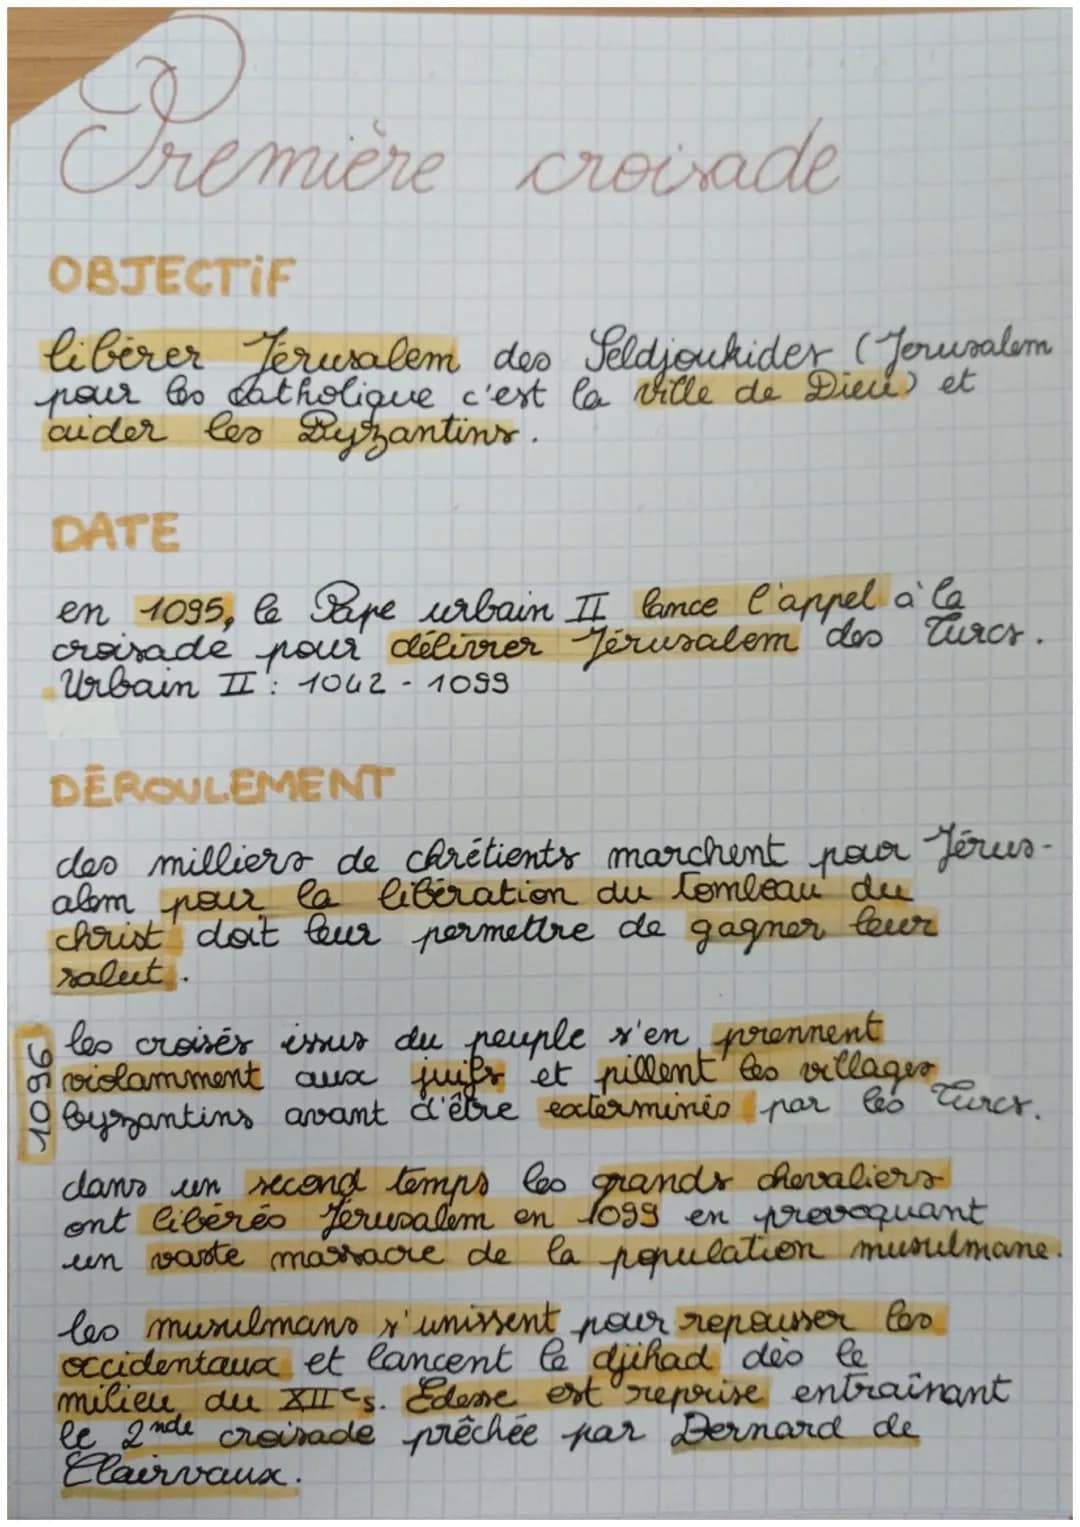 Première croisade
OBJECTiF
libérer Jérusalem des Seldjoukides (Jerusalem
pour les catholique c'est la ville de Dieu) et
aider les Byzantins.
DATE
en 1095, le Pape urbain II lance l'appel à la
croisade pour délivrer Jérusalem des Turcs.
Urbain II : 1042 - 1099
DÉROULEMENT
des milliers de chrétients marchent pour Jérus-
alem pour la libération du tombeau du
christ doit leur permettre de gagner leur
salut.
1096
les croisés issus du peuple s'en prennent
violamment aux juifs et pillent les villages
byzantins avant d'être exterminés par les Turcs.
dans un second temps les grands chevaliers
ont libérés Jérusalem en 1099 en provoquant
un vaste massacre de la population musulmane.
les musulmans s'unissent pour repousser les
occidentaux et lancent le djihad dès le
milieu du XIIe s. Edesse est reprise entraînant
le 2nde croisade prêchée par Bernard de
Clairvaux.